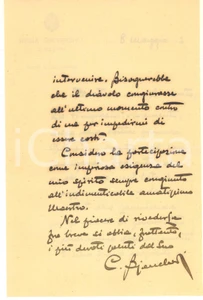 intervenire. Bisognerebbe
che il diavolo congiurasse
all'ultimo momento contro
di me per impedirmi di
essere costì.
Considero la partecipazione
come imperiosa esigenza del
mio spirito sempre congiunto
all'indimenticabile amatissimo
Maestro.
Nel piacere di rivederla
fra breve si abbia, frattanto,
i più devoti saluti del Suo
C.